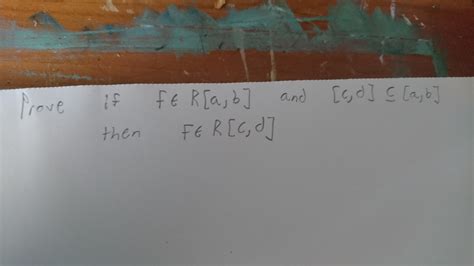 Prove if f ∈ R[a,b] and [c,d] ⊆ [a,b]
then f ∈ R[c,d]